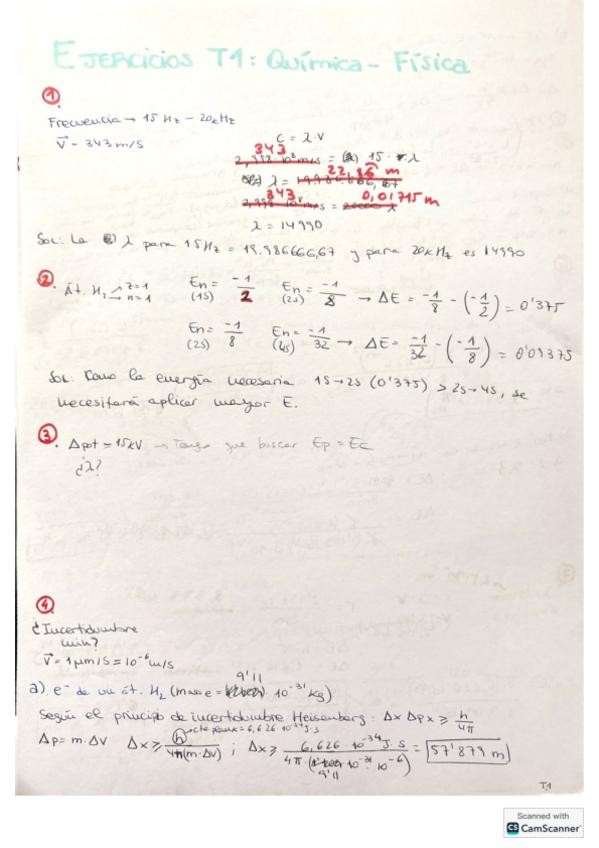 EJERCICIOS T1: QUÍMICA - FÍSICA
1
Frecuencia → 15 Hz - 20kHz
V = 343 m/s
C = λ·V
343
2,998·10 m/s = 15 · λ
λ = 22,86 m
343 0,01715 m
λ = 14990
Sol: La λ para 15Hz = 19.986666,67 y para 20kHz es 14990
2. Át. H, z=1 n=1
En = -1/2 (1s) En = -1/8 (2s) → ΔE = -1/8 - (-1/2) = 0'375
En = -1/8 (2s) En = -1/32 (4s) → ΔE = -1/32 - (-1/8) = 0'09375
Sol: Como la energía necesaria 1s→2s (0'375) > 2s→4s, se
necesitará aplicar mayor E.
3. Δpot = 15kV → Tengo que buscar Ep = Ec
¿λ?
4
¿Incertidumbre
min?
V = 1μm/s = 10⁻⁶ m/s
a) e⁻ de un át. H₂ (masa e = 9'11 · 10⁻³¹ kg)
Según el principio de incertidumbre Heisenberg: Δx Δpx ≥ h/4π
cte Planck = 6,626·10⁻³⁴ J·s
Δp = m·ΔV Δx ≥ h/4π(m·ΔV) ; Δx ≥ 6,626·10⁻³⁴ J·s / 4π·(9'11·10⁻³¹·10⁻⁶) = 57'879 m
T.1
Scanned with
CS CamScanner